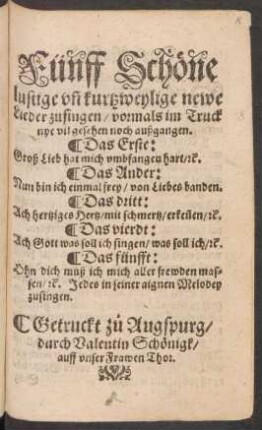 Fünff Schöne
lustige vñ kurtzweylige newe
Lieder zusingen / vormals im Truck
nye vil gesehen noch außgangen.
¶ Das Erste:
Groß Lieb hat mich vmbfangen hart / ꝛc.
¶ Das Ander:
Nun bin ich einmal frey / von Liebes banden.
¶ Das dritt:
Ach hertziges Hertz / mit schmertz / erkeilen / ꝛc.
¶ Das vierdt:
Ach Gott was soll ich singen / was soll ich / ꝛc.
¶ Das fünfft:
Ohn dich muß ich mich aller frewden mas-
sen / ꝛc. Jedes in seiner aignen Melodey
zusingen.
¶ Getruckt zů Augspurg /
durch Valentin Schönigk /
auff vnser Frawen Thor.